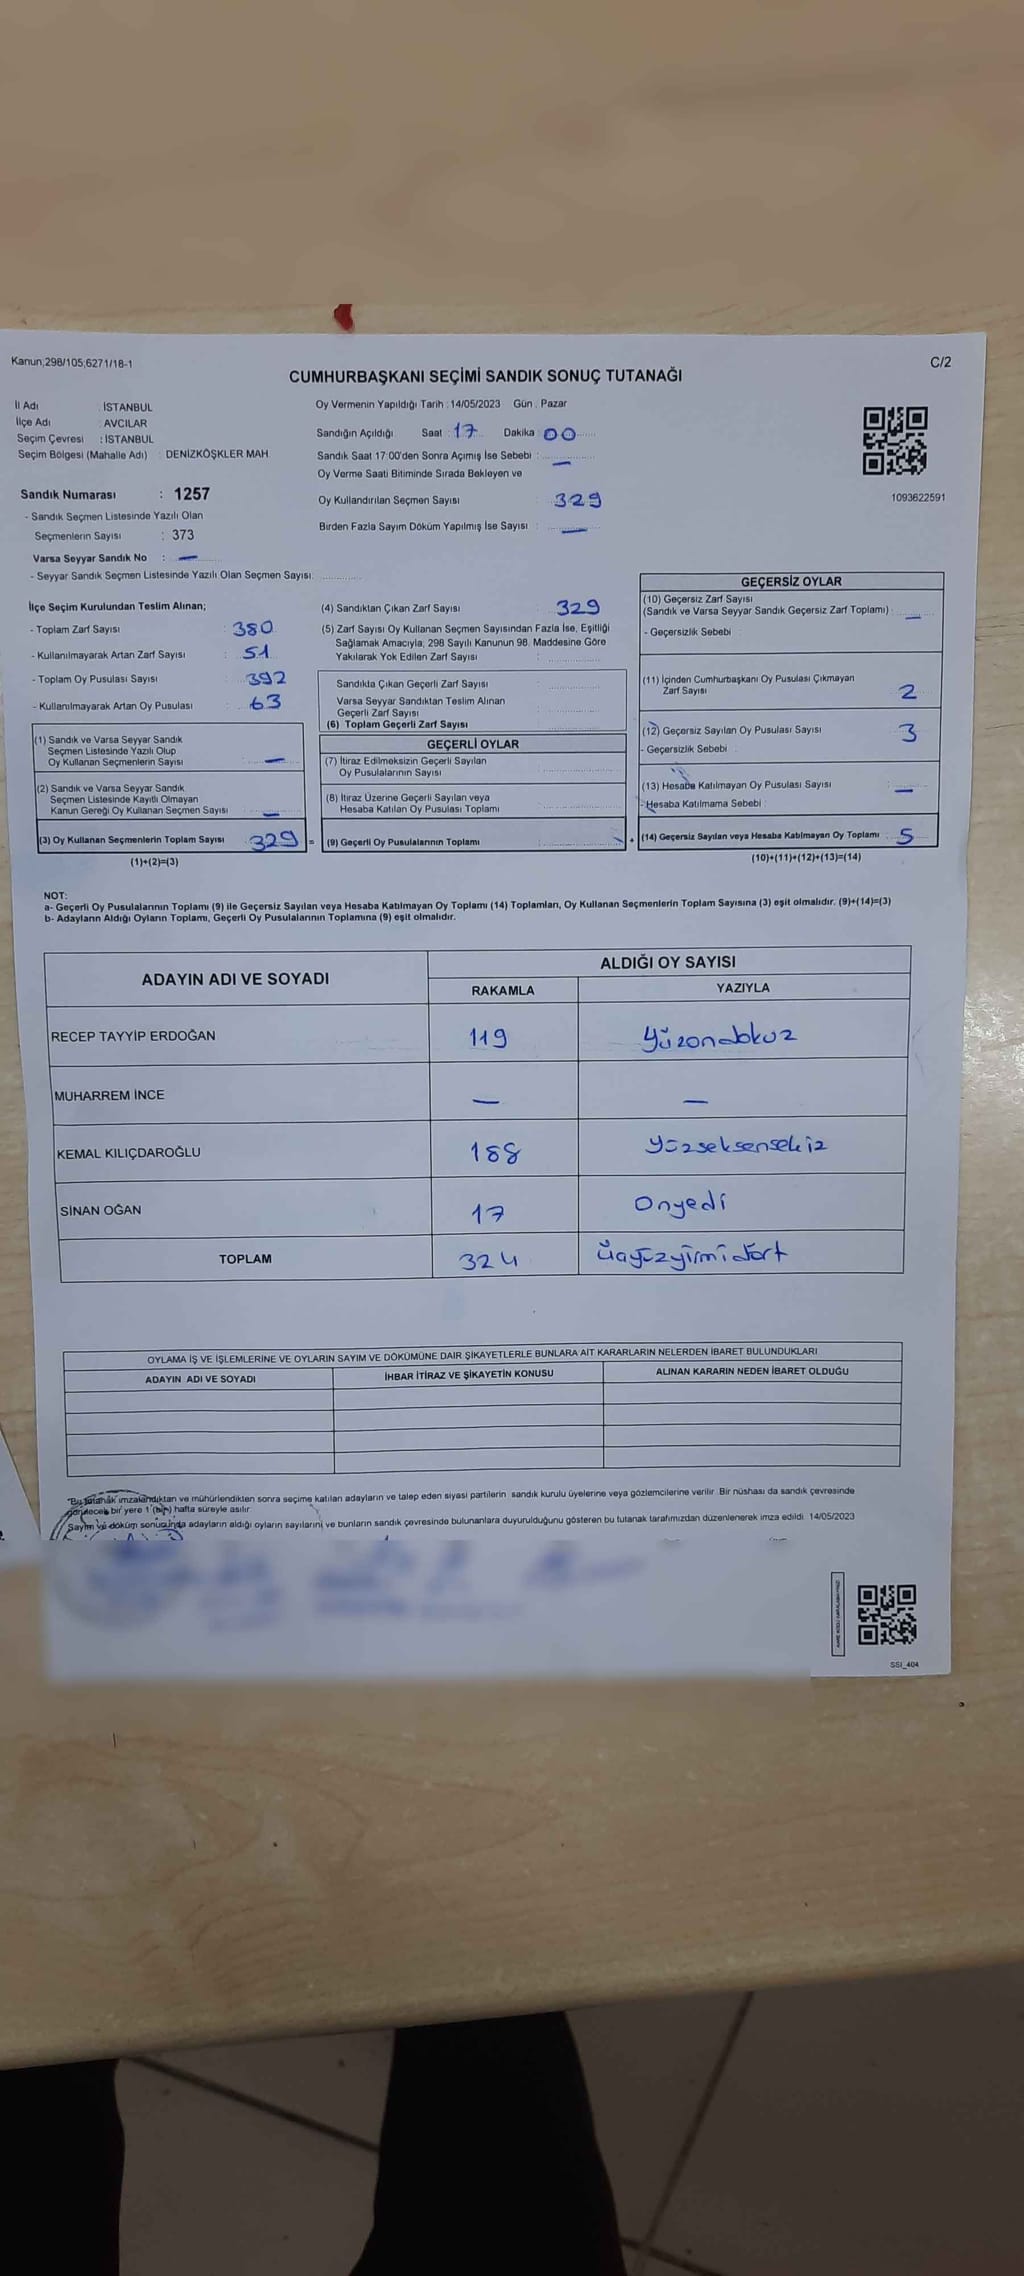 Kanun;298/105;6271/18-1
C/2
CUMHURBAŞKANI SEÇİMİ SANDIK SONUÇ TUTANAĞI
İl Adı : İSTANBUL
İlçe Adı : AVCILAR
Seçim Çevresi : İSTANBUL
Seçim Bölgesi (Mahalle Adı) : DENİZKÖŞKLER MAH
Sandık Numarası : 1257
- Sandık Seçmen Listesinde Yazılı Olan
Seçmenlerin Sayısı : 373
Varsa Seyyar Sandık No : —
- Seyyar Sandık Seçmen Listesinde Yazılı Olan Seçmen Sayısı:
Oy Vermenin Yapıldığı Tarih : 14/05/2023 Gün : Pazar
Sandığın Açıldığı Saat : 17 Dakika : 00
Sandık Saat 17:00'den Sonra Açımış İse Sebebi : —
Oy Verme Saati Bitiminde Sırada Bekleyen ve
Oy Kullandırılan Seçmen Sayısı : 329
Birden Fazla Sayım Döküm Yapılmış İse Sayısı : —
1093622591
İlçe Seçim Kurulundan Teslim Alınan;
- Toplam Zarf Sayısı : 380
- Kullanılmayarak Artan Zarf Sayısı : 51
- Toplam Oy Pusulası Sayısı : 392
- Kullanılmayarak Artan Oy Pusulası : 63
(1) Sandık ve Varsa Seyyar Sandık
Seçmen Listesinde Yazılı Olup
Oy Kullanan Seçmenlerin Sayısı : —
(2) Sandık ve Varsa Seyyar Sandık
Seçmen Listesinde Kayıtlı Olmayan
Kanun Gereği Oy Kullanan Seçmen Sayısı : —
(3) Oy Kullanan Seçmenlerin Toplam Sayısı : 329 =
(1)+(2)=(3)
(4) Sandıktan Çıkan Zarf Sayısı : 329
(5) Zarf Sayısı Oy Kullanan Seçmen Sayısından Fazla İse, Eşitliği
Sağlamak Amacıyla, 298 Sayılı Kanunun 98. Maddesine Göre
Yakılarak Yok Edilen Zarf Sayısı :
Sandıkta Çıkan Geçerli Zarf Sayısı :
Varsa Seyyar Sandıktan Teslim Alınan
Geçerli Zarf Sayısı :
(6) Toplam Geçerli Zarf Sayısı :
GEÇERLİ OYLAR
(7) İtiraz Edilmeksizin Geçerli Sayılan
Oy Pusulalarının Sayısı :
(8) İtiraz Üzerine Geçerli Sayılan veya
Hesaba Katılan Oy Pusulası Toplamı :
(9) Geçerli Oy Pusulalarının Toplamı : +
GEÇERSİZ OYLAR
(10) Geçersiz Zarf Sayısı
(Sandık ve Varsa Seyyar Sandık Geçersiz Zarf Toplamı) : —
- Geçersizlik Sebebi :
(11) İçinden Cumhurbaşkanı Oy Pusulası Çıkmayan
Zarf Sayısı 2
(12) Geçersiz Sayılan Oy Pusulası Sayısı : 3
- Geçersizlik Sebebi :
(13) Hesaba Katılmayan Oy Pusulası Sayısı : —
- Hesaba Katılmama Sebebi :
(14) Geçersiz Sayılan veya Hesaba Katılmayan Oy Toplamı : 5
(10)+(11)+(12)+(13)=(14)
NOT:
a- Geçerli Oy Pusulalarının Toplamı (9) ile Geçersiz Sayılan veya Hesaba Katılmayan Oy Toplamı (14) Toplamları, Oy Kullanan Seçmenlerin Toplam Sayısına (3) eşit olmalıdır. (9)+(14)=(3)
b- Adayların Aldığı Oyların Toplamı, Geçerli Oy Pusulalarının Toplamına (9) eşit olmalıdır.
ADAYIN ADI VE SOYADI ALDIĞI OY SAYISI
RAKAMLA YAZIYLA
RECEP TAYYİP ERDOĞAN 119 Yüzondokuz
MUHARREM İNCE — —
KEMAL KILIÇDAROĞLU 188 Yüzseksensekiz
SİNAN OĞAN 17 Onyedi
TOPLAM 324 üçyüzyirmidört
OYLAMA İŞ VE İŞLEMLERİNE VE OYLARIN SAYIM VE DÖKÜMÜNE DAİR ŞİKAYETLERLE BUNLARA AİT KARARLARIN NELERDEN İBARET BULUNDUKLARI
ADAYIN ADI VE SOYADI İHBAR İTİRAZ VE ŞİKAYETİN KONUSU ALINAN KARARIN NEDEN İBARET OLDUĞU
"Bu tutanak imzalandıktan ve mühürlendikten sonra seçime katılan adayların ve talep eden siyasi partilerin sandık kurulu üyelerine veya gözlemcilerine verilir. Bir nüshası da sandık çevresinde
görülecek bir yere 1 (bir) hafta süreyle asılır.
Sayım ve döküm sonucunda adayların aldığı oyların sayılarını ve bunların sandık çevresinde bulunanlara duyurulduğunu gösteren bu tutanak tarafımızdan düzenlenerek imza edildi. 14/05/2023
SSI_404